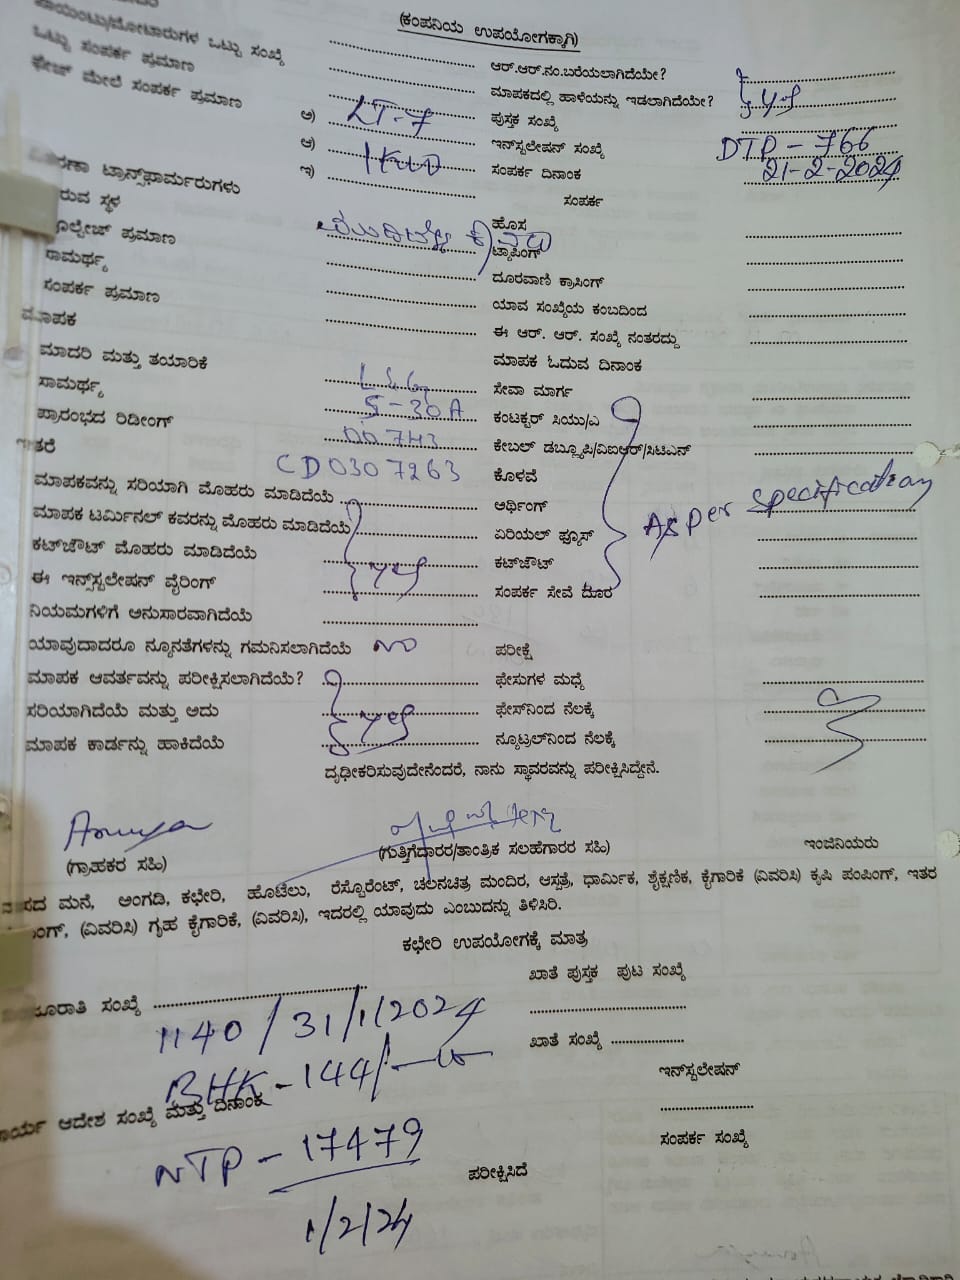 (ಕಂಪನಿಯ ಉಪಯೋಗಕ್ಕಾಗಿ)
ಪಾಯಿಂಟ್ಸು/ಮೋಟಾರುಗಳ ಒಟ್ಟು ಸಂಖ್ಯೆ
ಆರ್.ಆರ್.ನಂ.ಬರೆಯಲಾಗಿದೆಯೇ?
ಒಟ್ಟು ಸಂಪರ್ಕ ಪ್ರಮಾಣ
ಮಾಪಕದಲ್ಲಿ ಹಾಳೆಯನ್ನು ಇಡಲಾಗಿದೆಯೇ? yes
ಫೇಜ್ ಮೇಲೆ ಸಂಪರ್ಕ ಪ್ರಮಾಣ
ಅ) LT-7 ಪುಸ್ತಕ ಸಂಖ್ಯೆ
ಆ) 1KW ಇನ್‌ಸ್ಟಲೇಷನ್ ಸಂಖ್ಯೆ DTP - 766
ಇ) ಸಂಪರ್ಕ ದಿನಾಂಕ 21-2-2024
ಟ್ರಾನ್ಸ್‌ಫಾರ್ಮರುಗಳು ಸಂಪರ್ಕ
ರುವ ಸ್ಥಳ ಹೊಸ
ವೋಲ್ಟೇಜ್ ಪ್ರಮಾಣ ಟ್ಯಾಪಿಂಗ್
ಸಾಮರ್ಥ್ಯ ದೂರವಾಣಿ ಕ್ರಾಸಿಂಗ್
ಸಂಪರ್ಕ ಪ್ರಮಾಣ ಯಾವ ಸಂಖ್ಯೆಯ ಕಂಬದಿಂದ
ಮಾಪಕ ಈ ಆರ್. ಆರ್. ಸಂಖ್ಯೆ ನಂತರದ್ದು
ಮಾದರಿ ಮತ್ತು ತಯಾರಿಕೆ ಮಾಪಕ ಓದುವ ದಿನಾಂಕ
ಸಾಮರ್ಥ್ಯ L&G ಸೇವಾ ಮಾರ್ಗ
ಪ್ರಾರಂಭದ ರಿಡೀಂಗ್ 5-30A ಕಂಟಕ್ಟರ್ ಸಿಯು/ಎ
ಇತರೆ 00743 ಕೇಬಲ್ ಡಬ್ಲ್ಯೂಪಿ/ವಿಐಆರ್/ಸಿಟಿಎಸ್
CD0307263 ಕೊಳವೆ
ಮಾಪಕವನ್ನು ಸರಿಯಾಗಿ ಮೊಹರು ಮಾಡಿದೆಯೆ ಅರ್ಥಿಂಗ್ As per specification
ಮಾಪಕ ಟರ್ಮಿನಲ್ ಕವರನ್ನು ಮೊಹರು ಮಾಡಿದೆಯೆ ಏರಿಯಲ್ ಫ್ಯೂಸ್
ಕಟ್‌ಔಟ್ ಮೊಹರು ಮಾಡಿದೆಯೆ ಕಟ್‌ಔಟ್
ಈ ಇನ್‌ಸ್ಟಲೇಷನ್ ವೈರಿಂಗ್ yes ಸಂಪರ್ಕ ಸೇವೆ ದೂರ
ನಿಯಮಗಳಿಗೆ ಅನುಸಾರವಾಗಿದೆಯೆ
ಯಾವುದಾದರೂ ನ್ಯೂನತೆಗಳನ್ನು ಗಮನಿಸಲಾಗಿದೆಯೆ NO ಪರೀಕ್ಷೆ
ಮಾಪಕ ಆವರ್ತವನ್ನು ಪರೀಕ್ಷಿಸಲಾಗಿದೆಯೆ? ಫೇಸುಗಳ ಮಧ್ಯೆ
ಸರಿಯಾಗಿದೆಯೆ ಮತ್ತು ಅದು ಫೇಸ್‌ನಿಂದ ನೆಲಕ್ಕೆ
ಮಾಪಕ ಕಾರ್ಡನ್ನು ಹಾಕಿದೆಯೆ yes ನ್ಯೂಟ್ರಲ್‌ನಿಂದ ನೆಲಕ್ಕೆ
ದೃಢೀಕರಿಸುವುದೇನೆಂದರೆ, ನಾನು ಸ್ಥಾವರವನ್ನು ಪರೀಕ್ಷಿಸಿದ್ದೇನೆ.
(ಗ್ರಾಹಕರ ಸಹಿ) (ಗುತ್ತಿಗೆದಾರರ/ತಾಂತ್ರಿಕ ಸಲಹೆಗಾರರ ಸಹಿ) ಇಂಜಿನಿಯರು
ವಾಸದ ಮನೆ, ಅಂಗಡಿ, ಕಛೇರಿ, ಹೊಟೆಲು, ರೆಸ್ಟೊರೆಂಟ್, ಚಲನಚಿತ್ರ ಮಂದಿರ, ಆಸ್ಪತ್ರೆ, ಧಾರ್ಮಿಕ, ಶೈಕ್ಷಣಿಕ, ಕೈಗಾರಿಕೆ (ವಿವರಿಸಿ) ಕೃಷಿ ಪಂಪಿಂಗ್, ಇತರ
(ವಿವರಿಸಿ) ಗೃಹ ಕೈಗಾರಿಕೆ, (ವಿವರಿಸಿ), ಇದರಲ್ಲಿ ಯಾವುದು ಎಂಬುದನ್ನು ತಿಳಿಸಿರಿ.
ಕಛೇರಿ ಉಪಯೋಗಕ್ಕೆ ಮಾತ್ರ
ಖಾತೆ ಪುಸ್ತಕ ಪುಟ ಸಂಖ್ಯೆ
ಮಂಜೂರಾತಿ ಸಂಖ್ಯೆ
1140/31/1/2024
ಖಾತೆ ಸಂಖ್ಯೆ
BHK-144/-
ಇನ್‌ಸ್ಟಲೇಷನ್
ಕಾರ್ಯ ಆದೇಶ ಸಂಖ್ಯೆ ಮತ್ತು ದಿನಾಂಕ
ಸಂಪರ್ಕ ಸಂಖ್ಯೆ
NTP - 17479
ಪರೀಕ್ಷಿಸಿದೆ
1/2/24